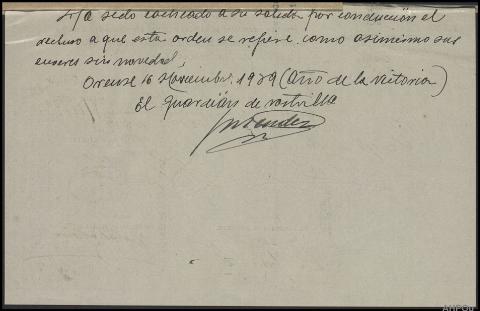 Ha sido cacheado a su salida por conducción el
recluso a que esta orden se refiere, como asimismo sus
enseres sin novedad,
Orense 16 Noviembre. 1939 (Año de la Victoria)
El guardián de rastrillo
Mendez
AHPOu